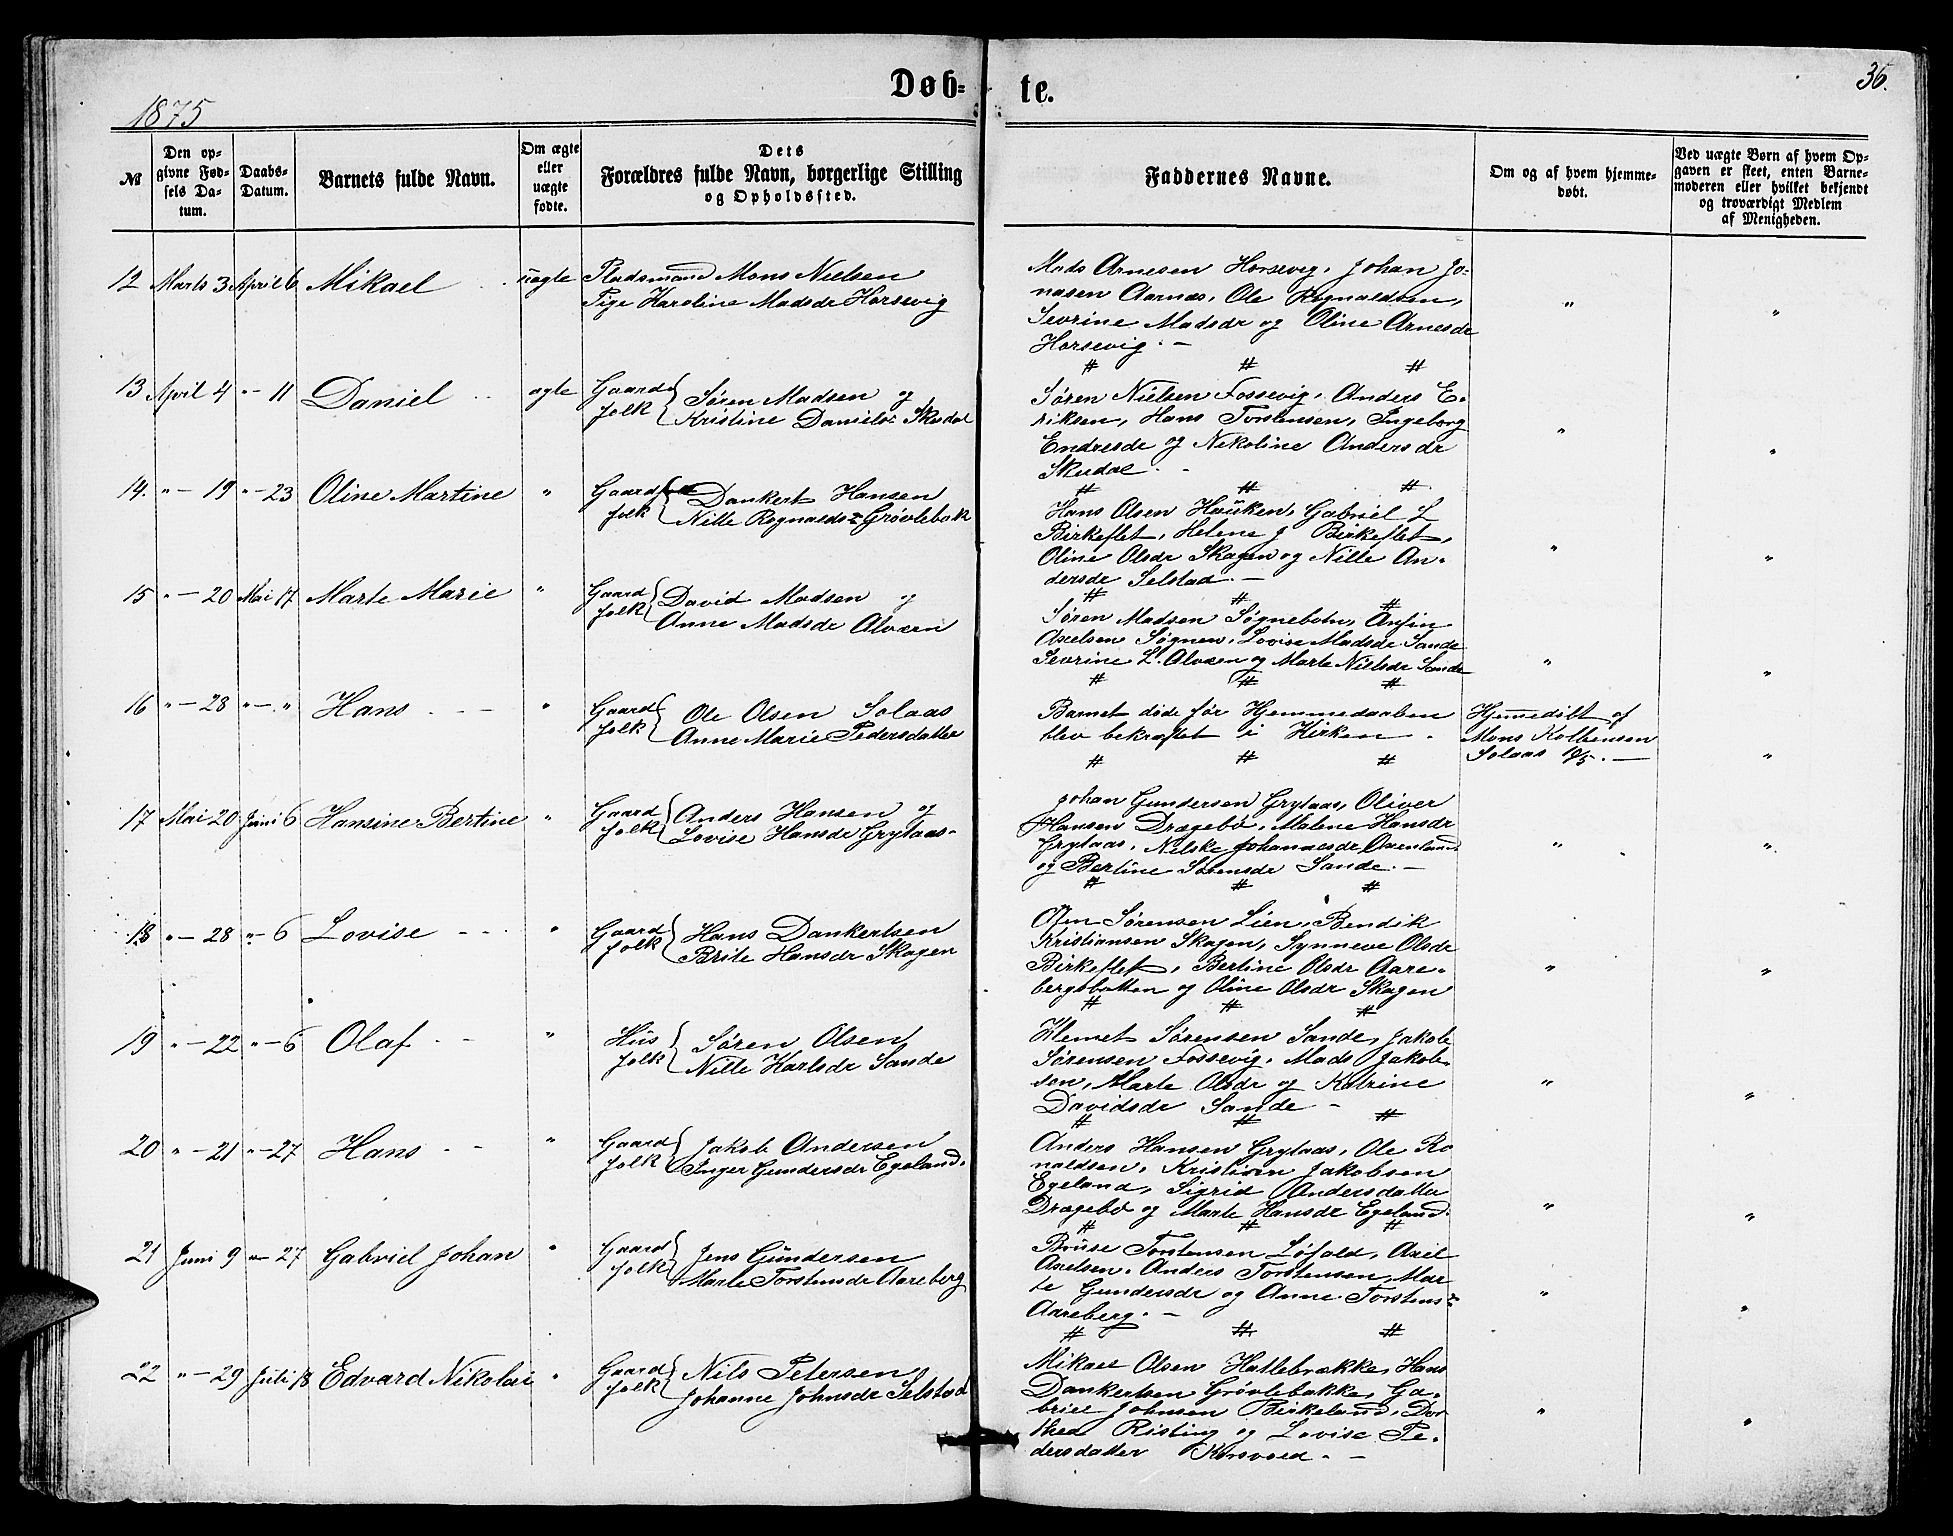 Døb-
te.
36.
1875
№
Den op-
givne Fød-
sels Da-
tum.
Daabs-
Datum.
Barnets fulde Navn.
Om ægte
eller
uægte
fødte.
Dets
Forældres fulde Navn, borgerlige Stilling
og Opholdssted.
Faddernes Navne.
Om og af hvem hjemme-
døbt.
Ved uægte Børn af hvem Op-
gaven er skeet, enten Barne-
moderen eller hvilket bekjendt
og troværdigt Medlem
af Menigheden.
12 Marts 3 April 6 Mikael uægte Pladsmand Mons Nielsen
Pige Karoline Madsdr Horsevig
Mads Arnesen Horsevig, Johan Jo-
nasen Aarnæs, Ole Rognaldsen,
Sevrine Madsdr og Oline Arnesdr
Horsevig. —
# # #
13 April 4 " - 11 Daniel ægte Gaard
folk Søren Madsen og
Kristine Danielsr Skudal
Søren Nielsen Fossevig, Anders E-
riksen, Hans Torstensen, Ingeborg
Endresdr og Nikoline Andersdr
Skudal.
# # #
14. " - 19 " - 23 Oline Martine " Gaard
folk Dankert Hansen
Nille Rognaldsr Grøvlebak
Hans Olsen Hauken, Gabriel L
Birkeflet, Helene J Birkeflet,
Oline Olsdr Skagen og Nille An-
dersdr Selstad. —
# # #
15 " - 20 Mai 17 Marte Marie " Gaard
folk David Madsen og
Anne Madsdr Alværen
Søren Madsen Søgnebotn, Anfin
Axelsen Søgnen, Lovise Madsdr Sande
Sevrine L. Alvæen og Marte Nielsdr Sande
# # #
16 " - 28 " - " Hans " Gaard
folk Ole Olsen Solaas
Anne Marie Pedersdatter
Barnet døde før Hjemmedaaben
blev bekræftet i Kirken.
Hjemedøbt af
Mons Kolbensen
Solaas 10/5. —
# # #
17 Mai 20 Juni 6 Hansine Bertine " Gaard
folk Anders Hansen og
Lovise Hansdr Grytaas-
Johan Gundersen Grytaas, Oliver
Hansen Drægebø, Malene Hansdr
Grytaas, Nilske Johannesdr Oxenland
og Bertine Sørensdr Sande. —
# # #
18 " - 28 " - 6 Lovise " Gaard
folk Hans Dankertsen
Brite Hansdr Skagen
Sørensen Lien, Bendik
Kristiansen Skagen, Synneve Olsdr
Birkeflet, Bertine Olsdr Aare-
bergsbotten og Oline Olsdr Skagen
# # #
19 " - 22 " - 6 Olaf " Hus
folk Søren Olsen
Nille Karlsdr Sande
Klemet Sørensen Sande, Jakob
Sørensen Fossevig, Mads Jakob-
sen, Marte Olsdr og Katrine
Davidsdr Sande -
# # #
20 " - 21 " - 27 Hans " Gaard
folk Jakob Andersen
Inger Gundersdr Egeland.
Anders Hansen Grytaas, Ole Ro
naldsen, Kristian Jakobsen
Egeland, Sigrid Andersdatter
Drægebø og Marte Hansdr Egeland.
# # #
21 Juni 9 " - 27 Gabriel Johan " Gaard
folk Jens Gundersen
Marte Torstensdr Aareberg
Bruse Torstensen Løfald, Axel
Axelsen, Anders Torstensen, Mar
te Gundersdr og Anne Torstensr
Aareberg. —
# # #
22 " - 29 Juli 18 Edvard Nikolai " Gaard
folk Nils Petersen
Johanne Johnsdr Selstad
Mikael Olsen Hatlebrække, Hans
Dankertsen Grøvlebakke, Ga-
briel Johnsen Birkeland, Dor
thea Risting og Lovise Pe-
dersdatter Korsvold. —